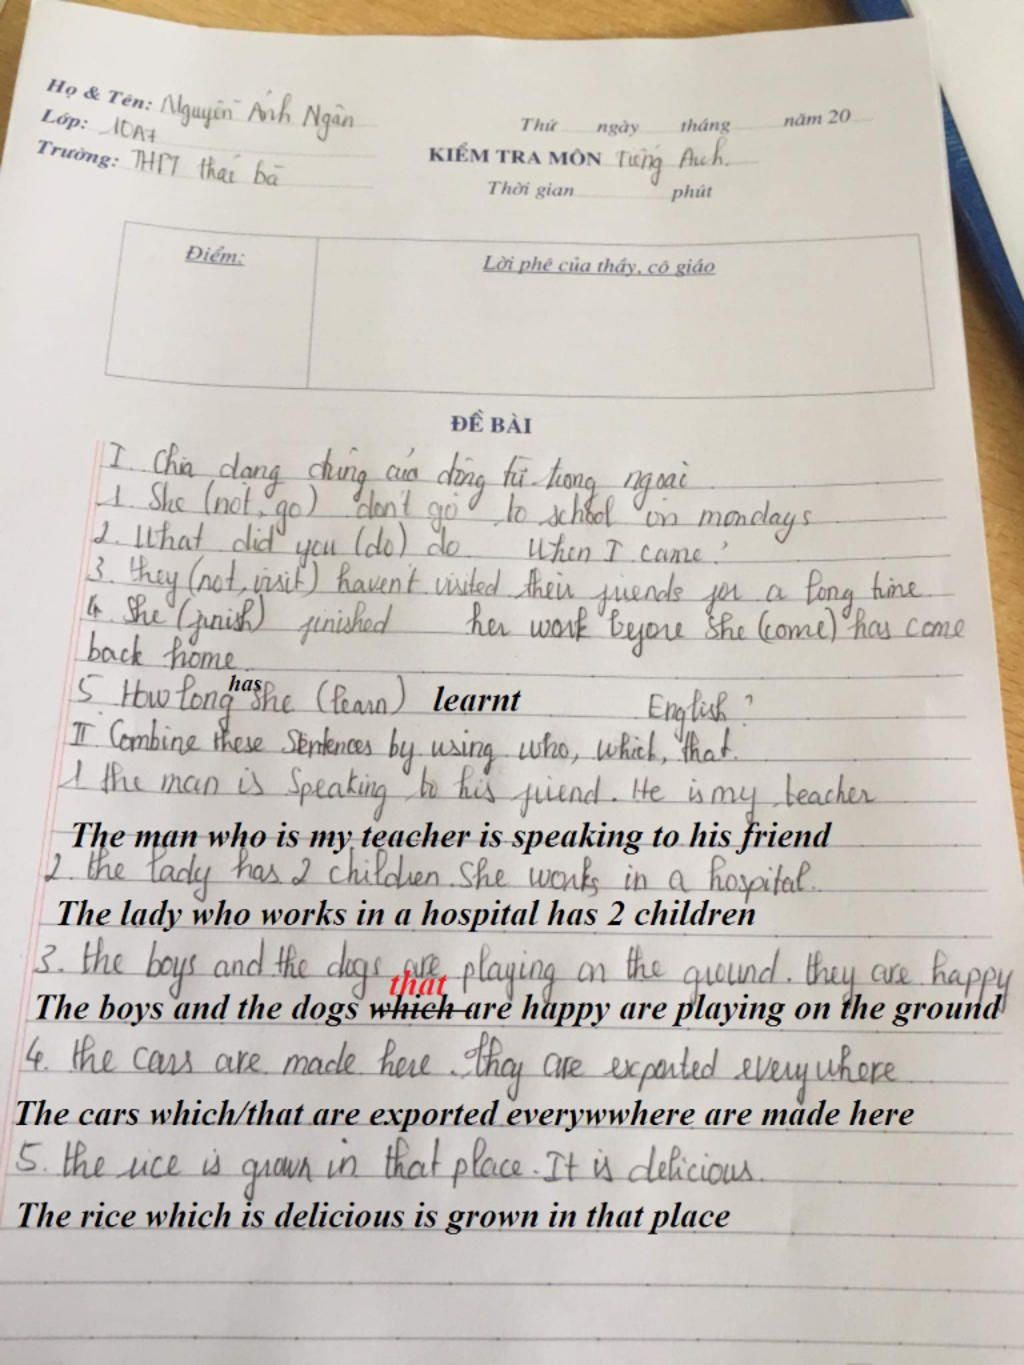 Họ & Tên: Nguyễn Ánh Ngân
Lớp: 10A7
Trường: THPT thái bà
Thứ ngày tháng năm 20
KIỂM TRA MÔN Tiếng Anh.
Thời gian phút
Điểm:
Lời phê của thầy, cô giáo
ĐỀ BÀI
I. Chia dạng đúng của động từ trong ngoặc
1. She (not, go) don't go to school on mondays
2. What did you (do) do When I came?
3. they (not, visit) haven't visited their friends for a long time
4. She (finish) finished her work before she (come) has come
back home
5 How long has she (learn) learnt English?
II. Combine these Sentences by using who, which, that.
1 the man is Speaking to his friend. He is my teacher
The man who is my teacher is speaking to his friend
2. the lady has 2 children. She works in a hospital.
The lady who works in a hospital has 2 children
3. the boys and the dogs are playing on the ground. they are happy
that
The boys and the dogs which are happy are playing on the ground
4. the cars are made here. they are exported everywhere
The cars which/that are exported everywwhere are made here
5. the rice is grown in that place. It is delicious.
The rice which is delicious is grown in that place